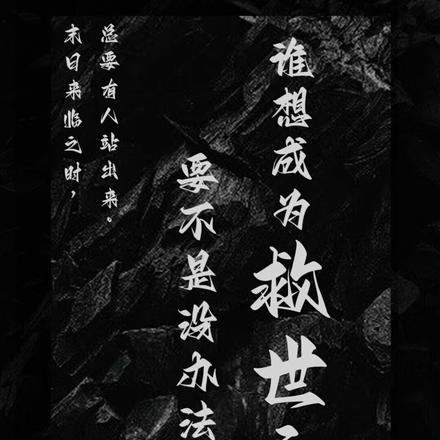 末日来临之时，
总要有人站出来。
要不是没办法
谁想成为救世